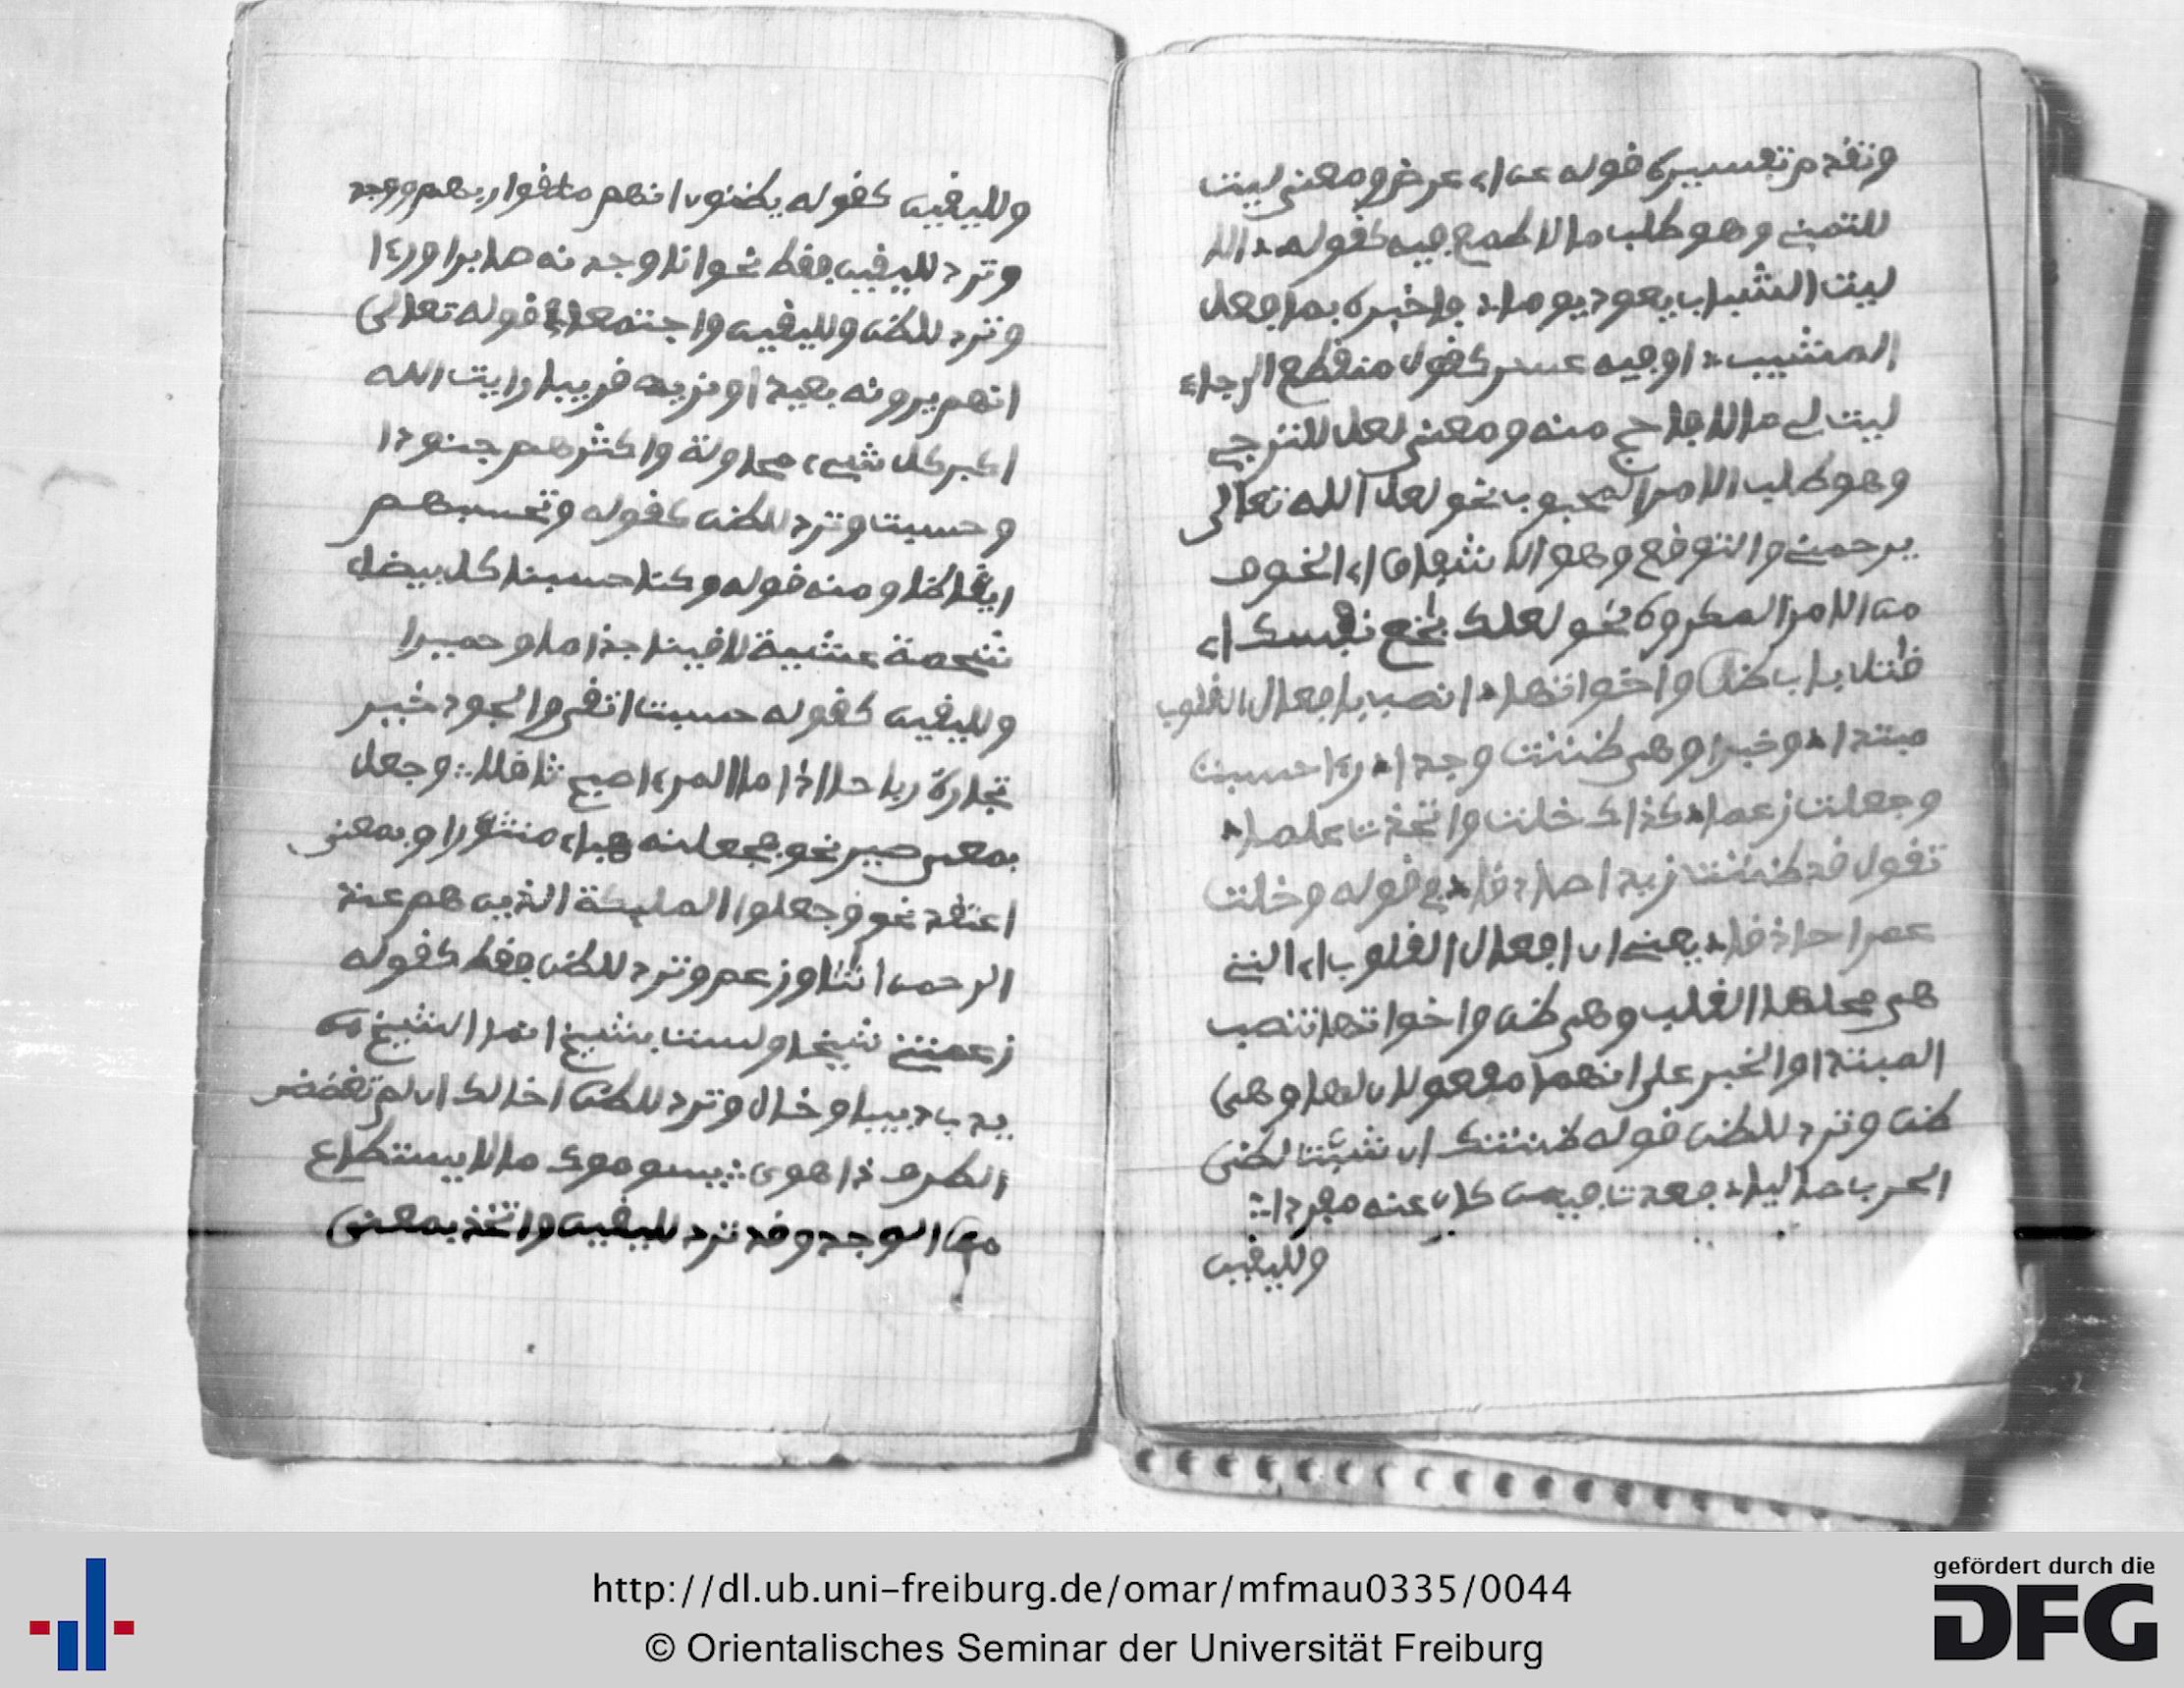 وتقدم تفسيره قوله عن اي عرض ومعنى ليت
للتمني وهو طلب ما لا طمع فيه كقوله الا
ليت الشباب يعود يوما فاخبره بما فعل
المشيب او فيه عسر كقول منقطع الرجاء
ليت لي مالا فاحج منه ومعنى لعل للترجي
وهو طلب الامر المحبوب نحو لعل الله تعالى
يرحمني والتوقع وهو الاشفاق اي الخوف
من الامر المكروه نحو لعلك بخع نفسك اي
قتل باب ظن واخواتها انصب بافعال القلوب
مبتدا وخبرا وهي ظننت وجد رءا حسبت
وجعلت زعما كذاك خلت واتخذت علما
تقول قد ظننت زيدا صادقا في قوله وخلت
عمرا حاذقا يعني ان افعال القلوب اي التي
هي محلها القلب وهي ظن واخواتها تنصب
المبتدا والخبر على انهما مفعولان لها وهي
ظن وترد للظن قوله ظننتك ان شبت لظى
الحرب صاليا فعردت فيمن كان عنه معردا
ولليقين
ولليقين كقوله يظنون انهم ملقوا ربهم ووجد
وترد لليقين فقط نحو انا وجدنه صابرا ورءا
وترد للظن ولليقين واجتمعا في قوله تعالى
انهم يرونه بعيدا ونريه قريبا رايت الله
اكبر كل شيء محاولة واكثرهم جنودا
وحسبت وترد للظن كقوله وتحسبهم
ايقاظا ومنه قوله وكنا حسبنا كل بيضاء
شحمة عشية لاقينا جذاما وحميرا
ولليقين كقوله حسبت التقى والجود خير
تجارة رباحا اذا ما المرء اصبح ثاقلا وجعل
بمعنى صير نحو فجعلنه هباء منثورا وبمعنى
اعتقد نحو وجعلوا المليكة الذين هم عند
الرحمن انثا وزعم وترد للظن فقط كقوله
زعمتني شيخا ولست بشيخ انما الشيخ من
يدب دبيبا وخال وترد للظن اخالك ان لم تغضض
الطرف ذا هوى يسومك ما لا يستطاع
من الوجد وقد ترد لليقين واتخذ بمعنى
http://dl.ub.uni-freiburg.de/omar/mfmau0335/0044
© Orientalisches Seminar der Universität Freiburg
gefördert durch die
DFG